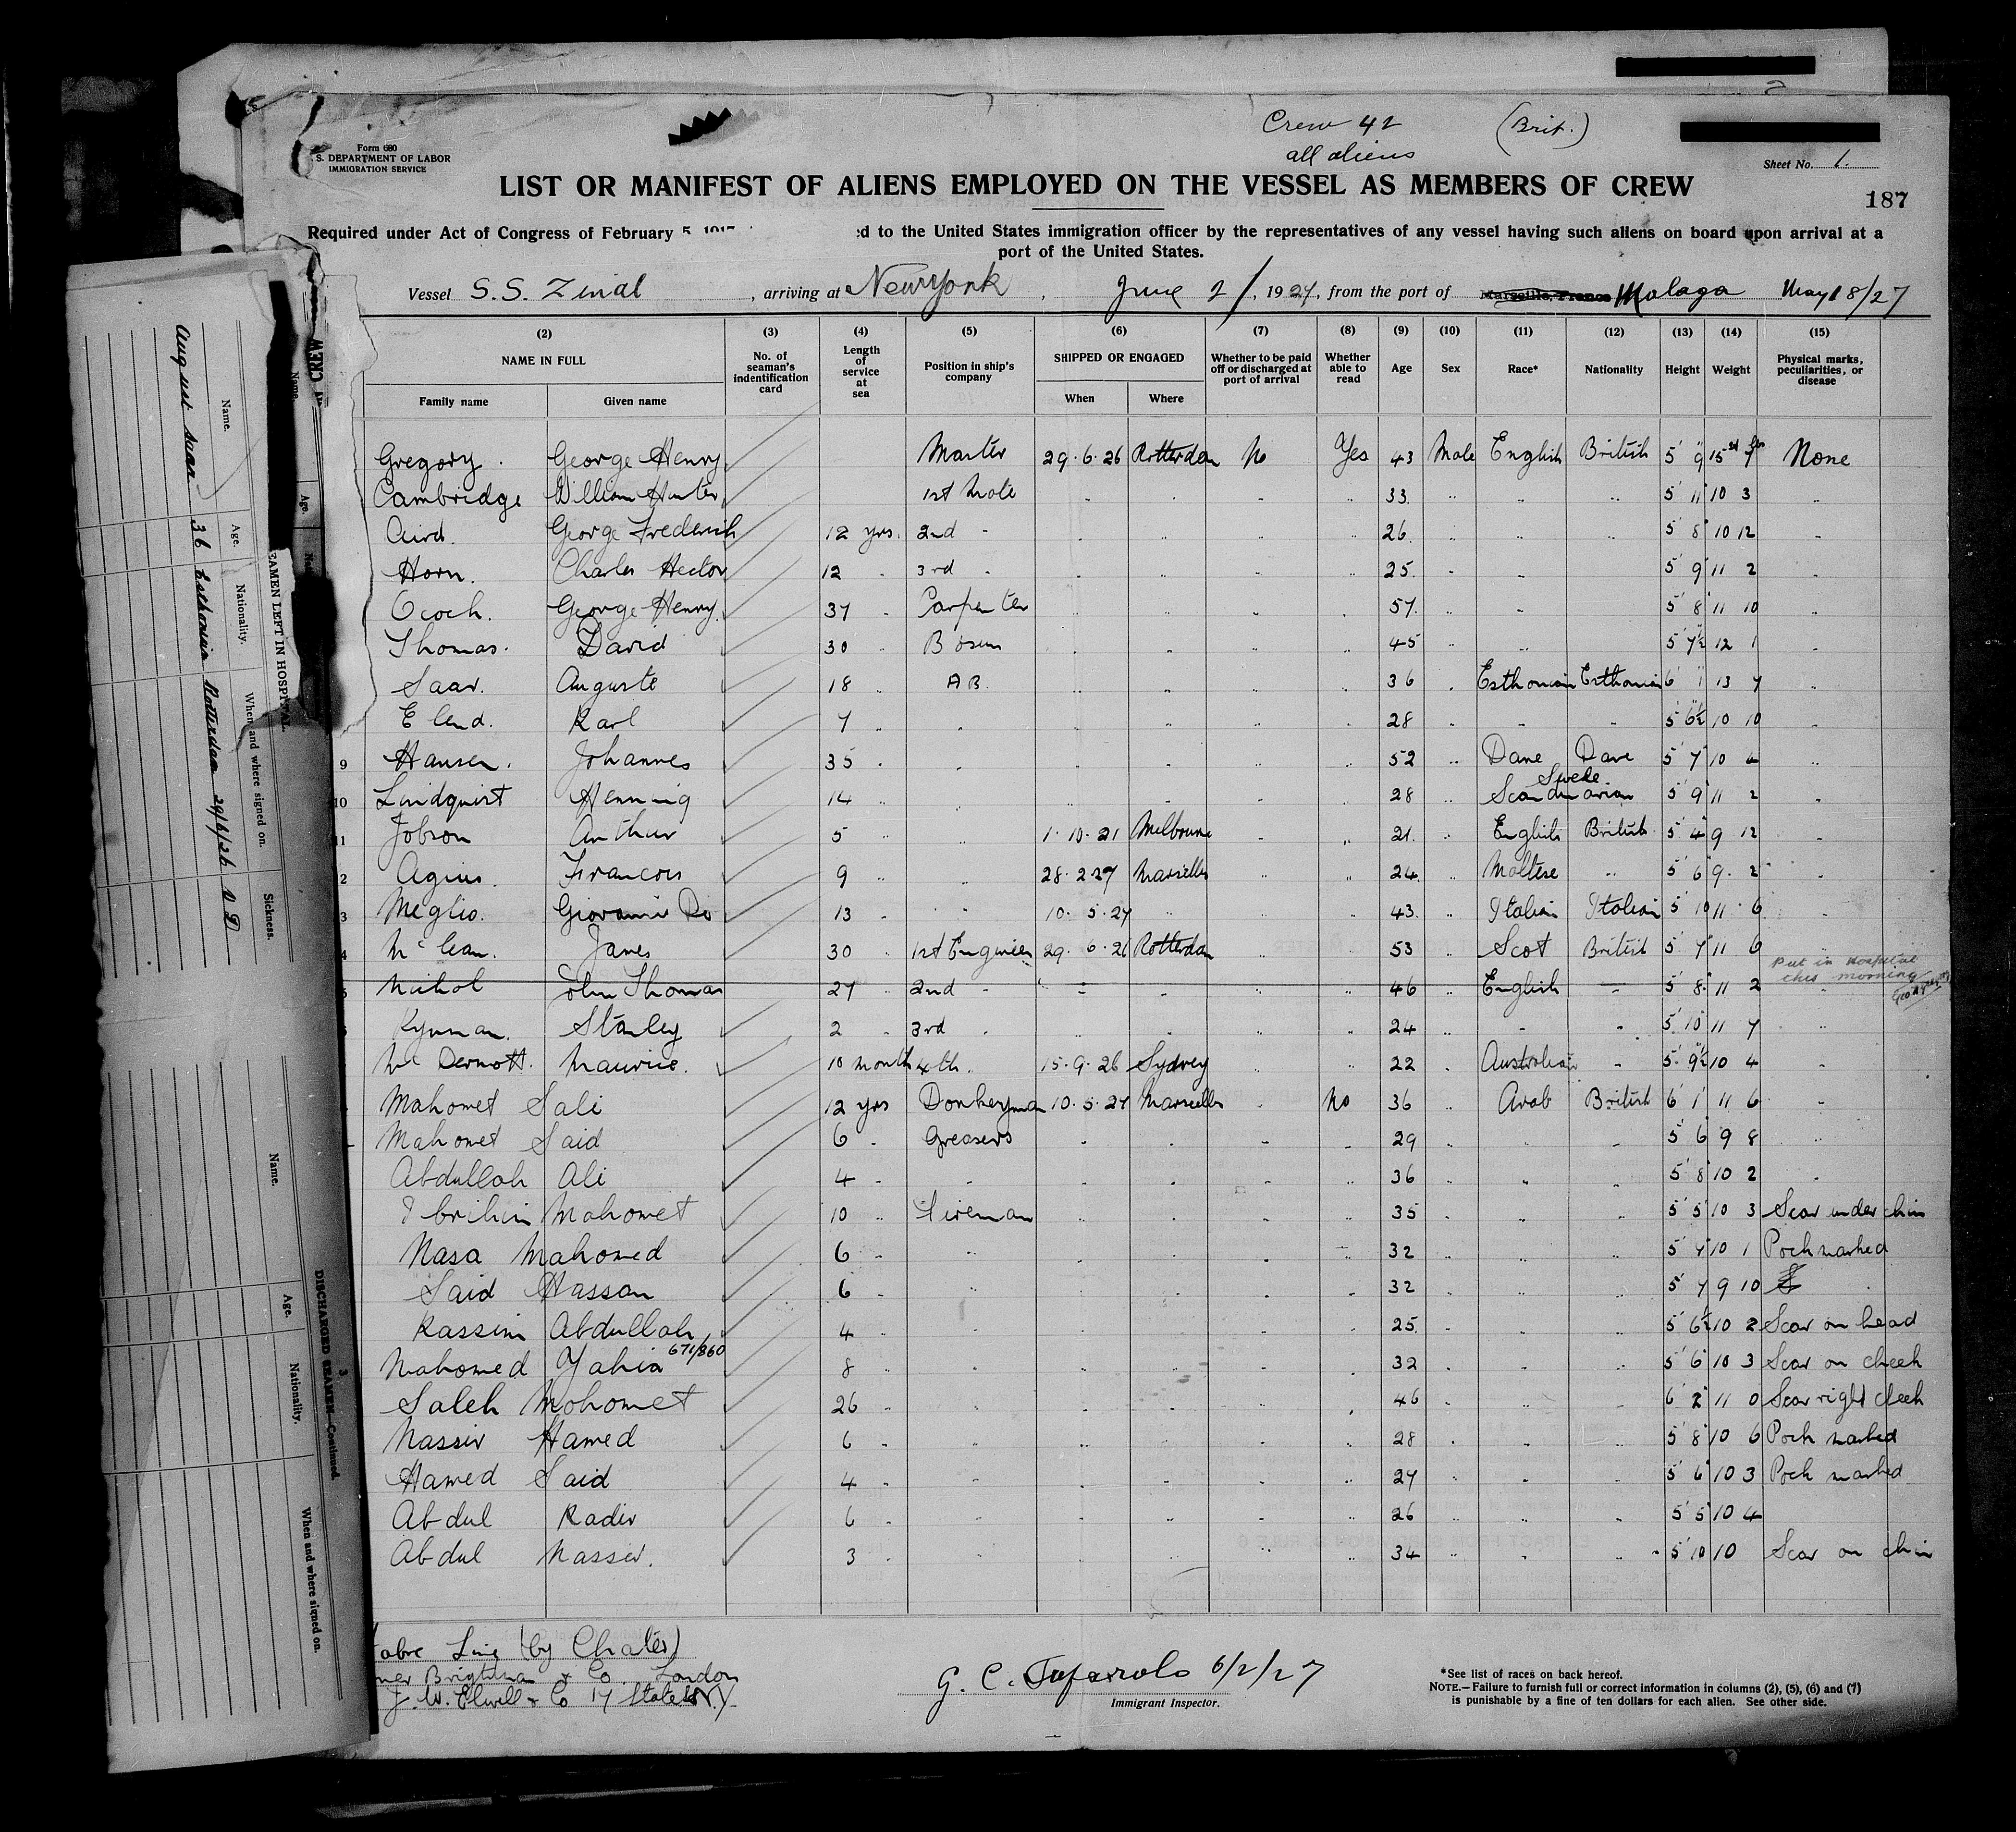 Crew 42 (Brit.)
all aliens
Form 680
S. DEPARTMENT OF LABOR
IMMIGRATION SERVICE
Sheet No. 1.
LIST OR MANIFEST OF ALIENS EMPLOYED ON THE VESSEL AS MEMBERS OF CREW
187
Required under Act of Congress of February 5, 1917, d to the United States immigration officer by the representatives of any vessel having such aliens on board upon arrival at a
port of the United States.
Vessel S.S. Zinal, arriving at New York, June 2, 1927, from the port of Marseille, France Malaga May 18/27
(2) (3) (4) (5) (6) (7) (8) (9) (10) (11) (12) (13) (14) (15)
NAME IN FULL No. of seaman's indentification card Length of service at sea Position in ship's company SHIPPED OR ENGAGED Whether to be paid off or discharged at port of arrival Whether able to read Age Sex Race* Nationality Height Weight Physical marks, peculiarities, or disease
Family name Given name When Where
Gregory. George Henry Master 29.6.26 Rotterdam No Yes 43 Male English British 5' 9" 15 7 None
Cambridge William Hunter 1st Mate " " " " 33. " " " 5 11 10 3 "
Aird. George Frederick 12 yrs. 2nd " " " " " 26. " " " 5 8 10 12 "
Horn. Charles Hector 12 " 3rd " " " " " 25. " " 5 9 11 2 "
George Henry. 37 " Carpenter " " " " 57. " " 5 8 11 10
Thomas. David 30 " Bosun " " " " 45 " " 5 7½ 12 1 "
Saar. Auguste 18 " AB. " " " " 36 " Esthonian Esthonian 6 1 13 7 "
Elend. Karl 7 " " " " " " 28 " " " 5 6½ 10 10
9 Hansen. Johannes 35 " " " " " " 52 " Dane Dane 5 7 10 4 "
Swede
10 Lindquist Henning 14 " " " " " " 28 " Scandinavian 5 9 11 2 "
1 Jobson Arthur 5 " " 1.10.21 Melbourne " " 21. " English British 5 4 9 12 "
2 Agius. Francois 9 " " 28.2.27 Marseilles " " 24. " Maltese " 5 6 9 2 "
3 Meglio. Giovanni Do 13 " " 10.5.27 " " " 43. " Italian Italian 5 10 11 6 "
4 McLean. James 30 " 1st Engineer 29.6.26 Rotterdam " " 53 " Scot British 5 7 11 6 "
Put in Hospital
this morning
5 Nichol John Thomas 27 " 2nd " " " " " 46 " English " 5 8 11 2 "
Kynman. Stanley 2 " 3rd " " " " " 24 " " " 5 10 11 7 "
McDermott. Maurice. 10 month 4th. 15.9.26 Sydney " " 22 " Australian " 5 9½ 10 4 "
Mahomet Sali 12 yrs Donkeyman 10.5.27 Marseilles " No 36 " Arab British 6 1 11 6 "
Mahomet Said 6 " Greasers " " " " 29 " " " 5 6 9 8 "
Abdullah Ali 4 " " " " " " 36 " " " 5 8 10 2 "
Ibrihim Mahomet 10 " Fireman " " " " 35 " " " 5 5 10 3 Scar under chin
Nasa Mahomed 6 " " " " " " 32 " " " 5 7 10 1 Pock marked
Said Hassan 6 " " " " " " 32 " " " 5 7 9 10
Kassim Abdullah 4 " " " " " " 25. " " " 5 6½ 10 2 Scar on head
671/860
Mahomed Yahia 8 " " " " " " 32 " " " 5 6 10 3 Scar on cheek
Saleh Mohomet 26 " " " " " " 46 " " " 6 2 11 0 Scar right cheek
Nassir Hamed 6 " " " " " " 28 " " " 5 8 10 6 Pock marked
Hamed Said 4 " " " " " " 27 " " " 5 6 10 3 Pock marked
Abdul Kadir 6 " " " " " " 26 " " " 5 5 10 4
Abdul Nasser. 3 " " " " " " 34 " " " 5 10 10 Scar on chin
Fabre Line (by Chater)
Brightman & Co. London
J. W. Elwell & Co 17 State St N.Y.
G. C. 6/2/27
Immigrant Inspector.
*See list of races on back hereof.
NOTE.—Failure to furnish full or correct information in columns (2), (5), (6) and (7)
is punishable by a fine of ten dollars for each alien. See other side.
CREW
Name.
Age.
EAMEN LEFT IN HOSPITAL
Name. Age. Nationality. When and where signed on. Sickness.
August Saar 36 Esthonia Rotterdam 29/6/26 V D
3
DISCHARGED SEAMEN—Continued.
Name. Age. Nationality. When and where signed on.